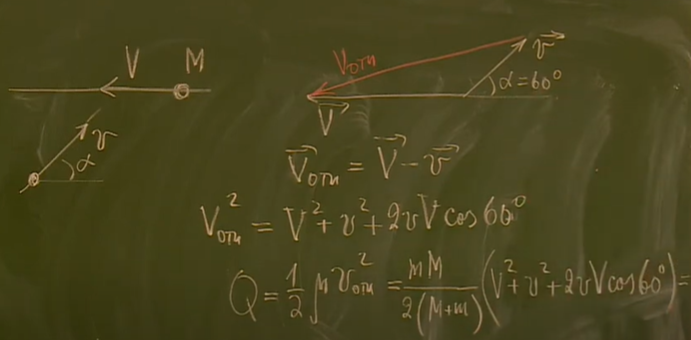 V M
v
α
V⃗отн
v⃗
α=60°
V⃗
V⃗отн = V⃗ - v⃗
Vотн² = V² + v² + 2vV cos 60°
Q = 1/2 μ vотн² = mM / 2(M+m) (V² + v² + 2vV cos 60°) =